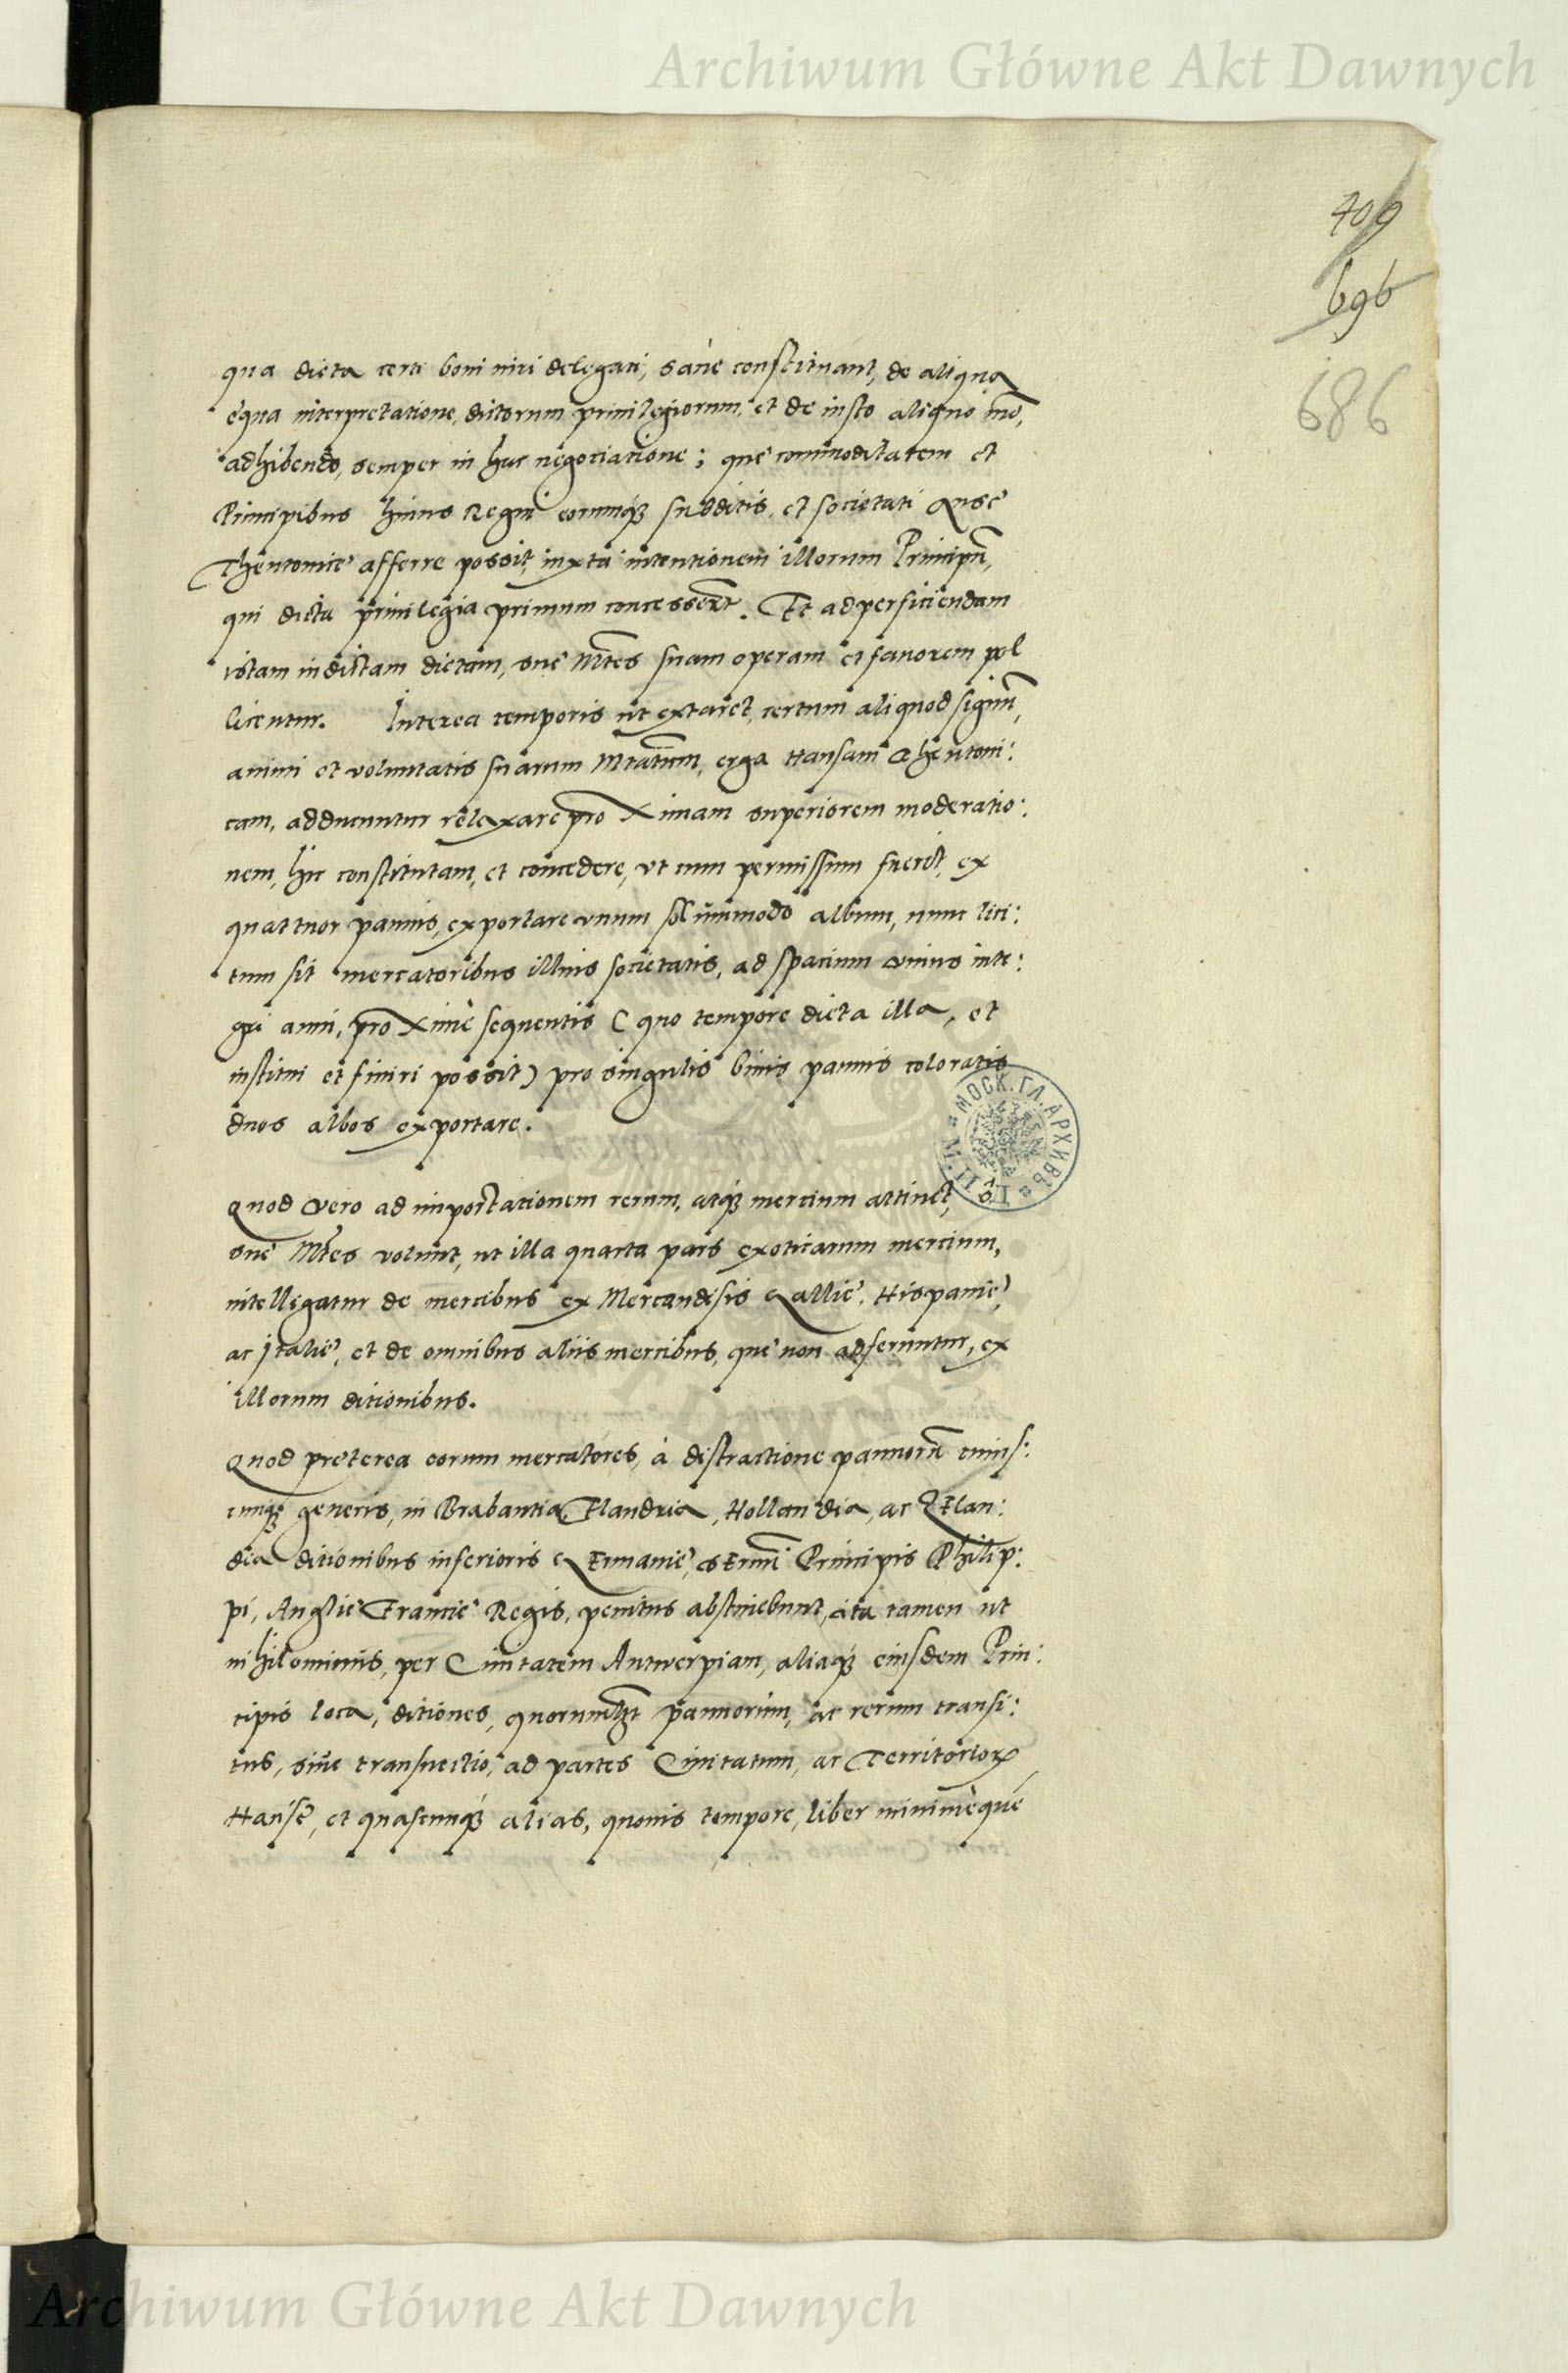 Archiwum Główne Akt Dawnych
409
696
686
qua dieta certi boni uiri delegati, sane constituant, de aliqua
ęqua interpretatione, dictorum priuilegiorum, et de iusto aliquo mō,
adhibendo, semper in hac negociatione; quę commoditatem et
Principibus huius Regni eorumq₃ subditis, et societati Ansę
Theutonicę afferre possit, iuxta intentionem illorum Principū,
qui dicta priuilegia primum concesserūt. Et ad perficiendam
istam indictam dietam, suę Mtes suam operam et fauorem pol
licentur. Interea temporis ut extaret, certum aliquod signū,
animi et voluntatis suarum Mtatum, erga Hansam Theutoni:
cam, adducuntur relaxare proximam superiorem moderatio:
nem, hic constitutam, et concedere, vt cum permissum fuerit, ex
quattuor pannis, exportare vnum solūmmodo album, nunc lici:
tum sit mercatoribus illius societatis, ad spacium vnius inte:
gri anni, proximè sequentis (quo tempore dieta illa, et
institui et finiri possit) pro singulis binis pannis coloratis
duos albos exportare.
МОСК. ГЛ. АРХИВЪ
М. И. Д.
Quod vero ad importationem rerum, atq₃ mercium attinet,
suę Mtes volunt, ut illa quarta pars exoticarum mercium,
intelligatur de mercibus ex Mercandisis Gallię, Hispanię,
ac Italię, et de omnibus aliis mercibus, quę non adferuntur, ex
illorum ditionibus.
Quod pręterea eorum mercatores, à distractione pannorū cuius:
cunq₃ generis, in Brabantia, Flandria, Hollandia, ac Zelan:
dia ditionibus inferioris Germanię, Sermi Principis Philip:
pi, Anglię Francię Regis, penitus abstinebunt, ita tamen ut
nihilominus, per Ciuitatem Antwerpiam, aliaq₃ eiusdem Prin:
cipis loca, ditiones, pannorum, ac rerum transi:
tus, siue transuectio, ad partes Ciuitatum, ac Territorior
Hansę, et quascunq₃ alias, quouis tempore, liber minimèque
Archiwum Główne Akt Dawnych